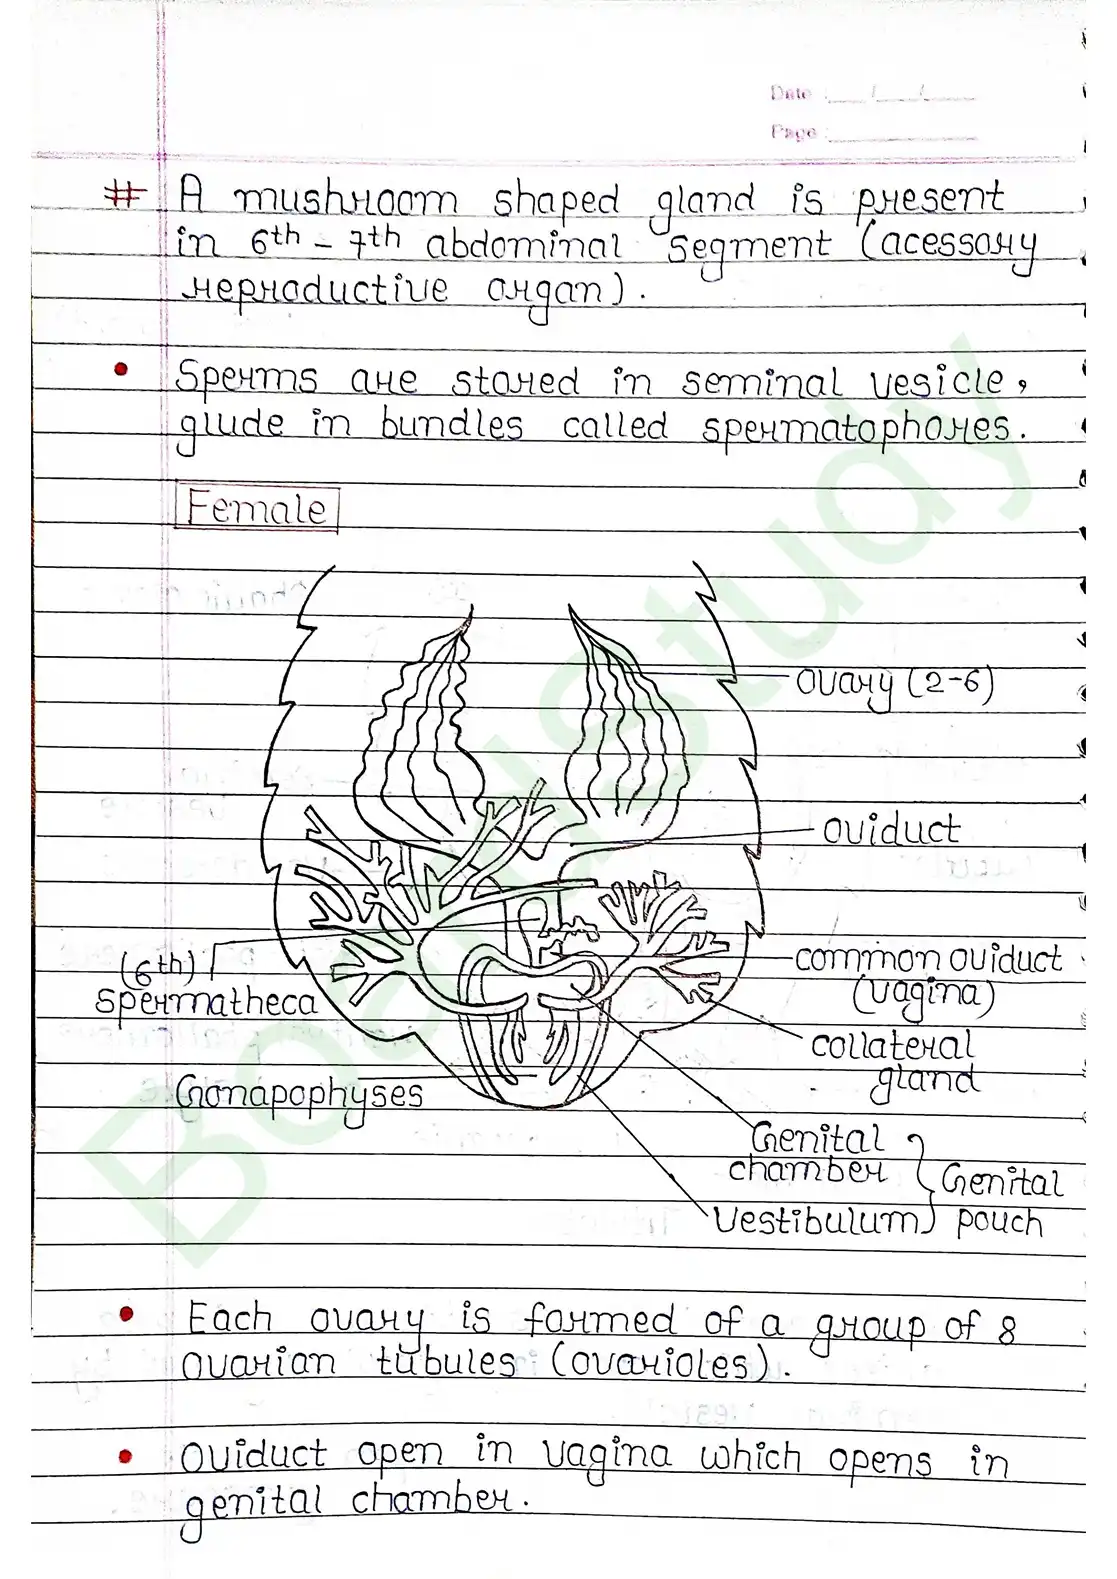 Date : __/__/__
Page :
# A mushroom shaped gland is present
in 6th - 7th abdominal segment (acessory
reproductive organ).
• Sperms are stored in seminal vesicle,
glude in bundles called spermatophores.
Female
ovary (2-6)
oviduct
(6th)
spermatheca
common oviduct
(vagina)
collateral
gland
Gonapophyses
Genital
chamber
Genital
pouch
Vestibulum
• Each ovary is formed of a group of 8
ovarian tubules (ovarioles).
• Oviduct open in vagina which opens in
genital chamber.